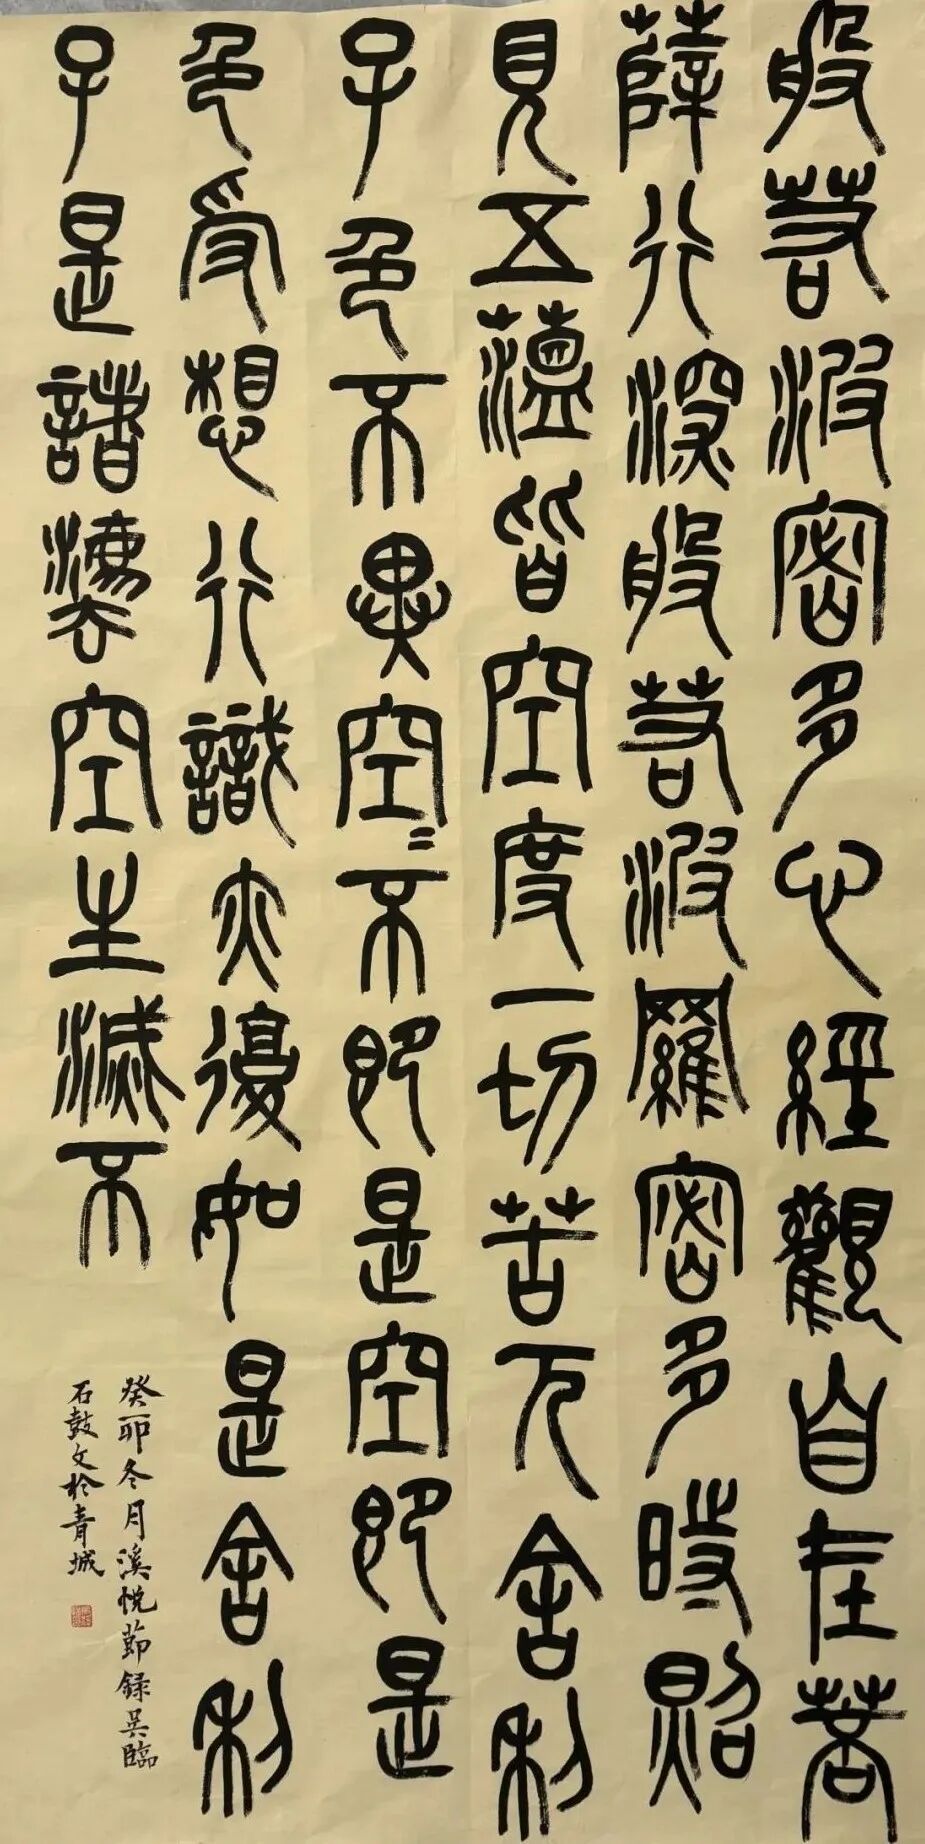 般若波密多心經觀自在菩
薩行深般若波羅密多時照
見五蘊皆空度一切苦厄舍利
子色不異空〻不即是空即是
色受想行識亦復如是舍利
子是諸灋空生滅不
癸卯冬月溪悅節錄吳臨
石鼓文於青城